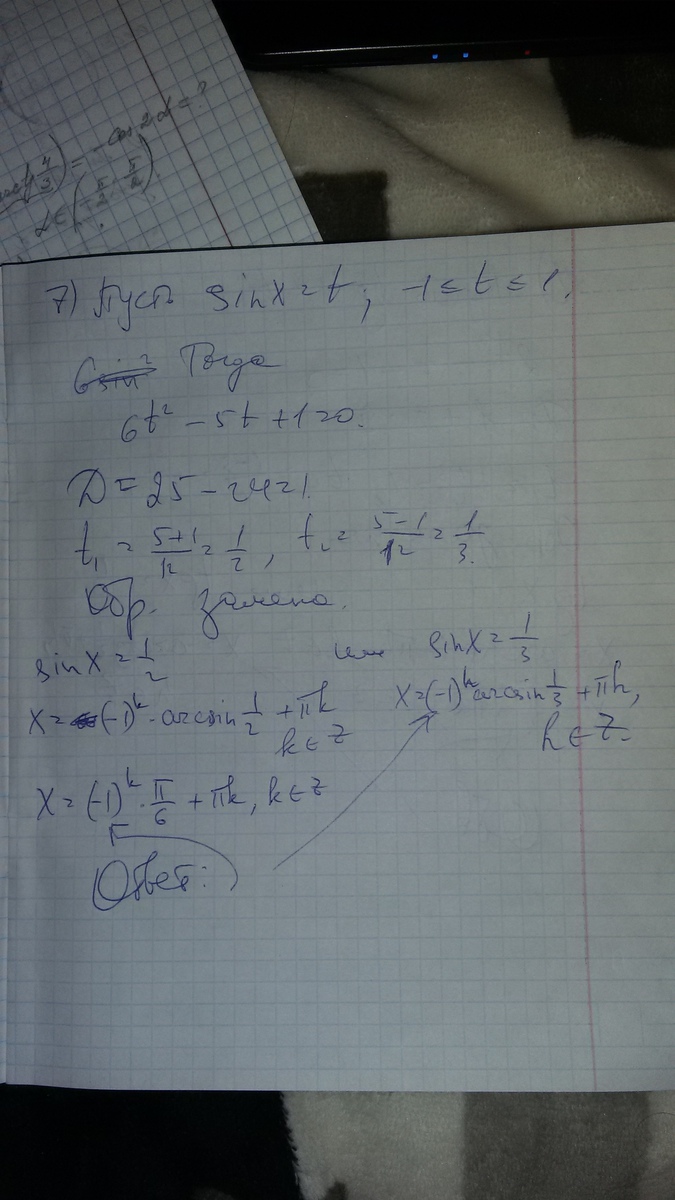 = -cos 2α = ?
α ∈ (-π/2; π/2)
7) Пусть sinx = t; -1 ≤ t ≤ 1.
Тогда
6t² - 5t + 1 = 0.
D = 25 - 24 = 1
t₁ = (5+1)/12 = 1/2, t₂ = (5-1)/12 = 1/3.
Обр. замена.
sinx = 1/2 или sinx = 1/3
x = (-1)^k · arcsin 1/2 + πk
k ∈ Z
x = (-1)^k arcsin 1/3 + πk,
k ∈ Z.
x = (-1)^k · π/6 + πk, k ∈ Z
Ответ: